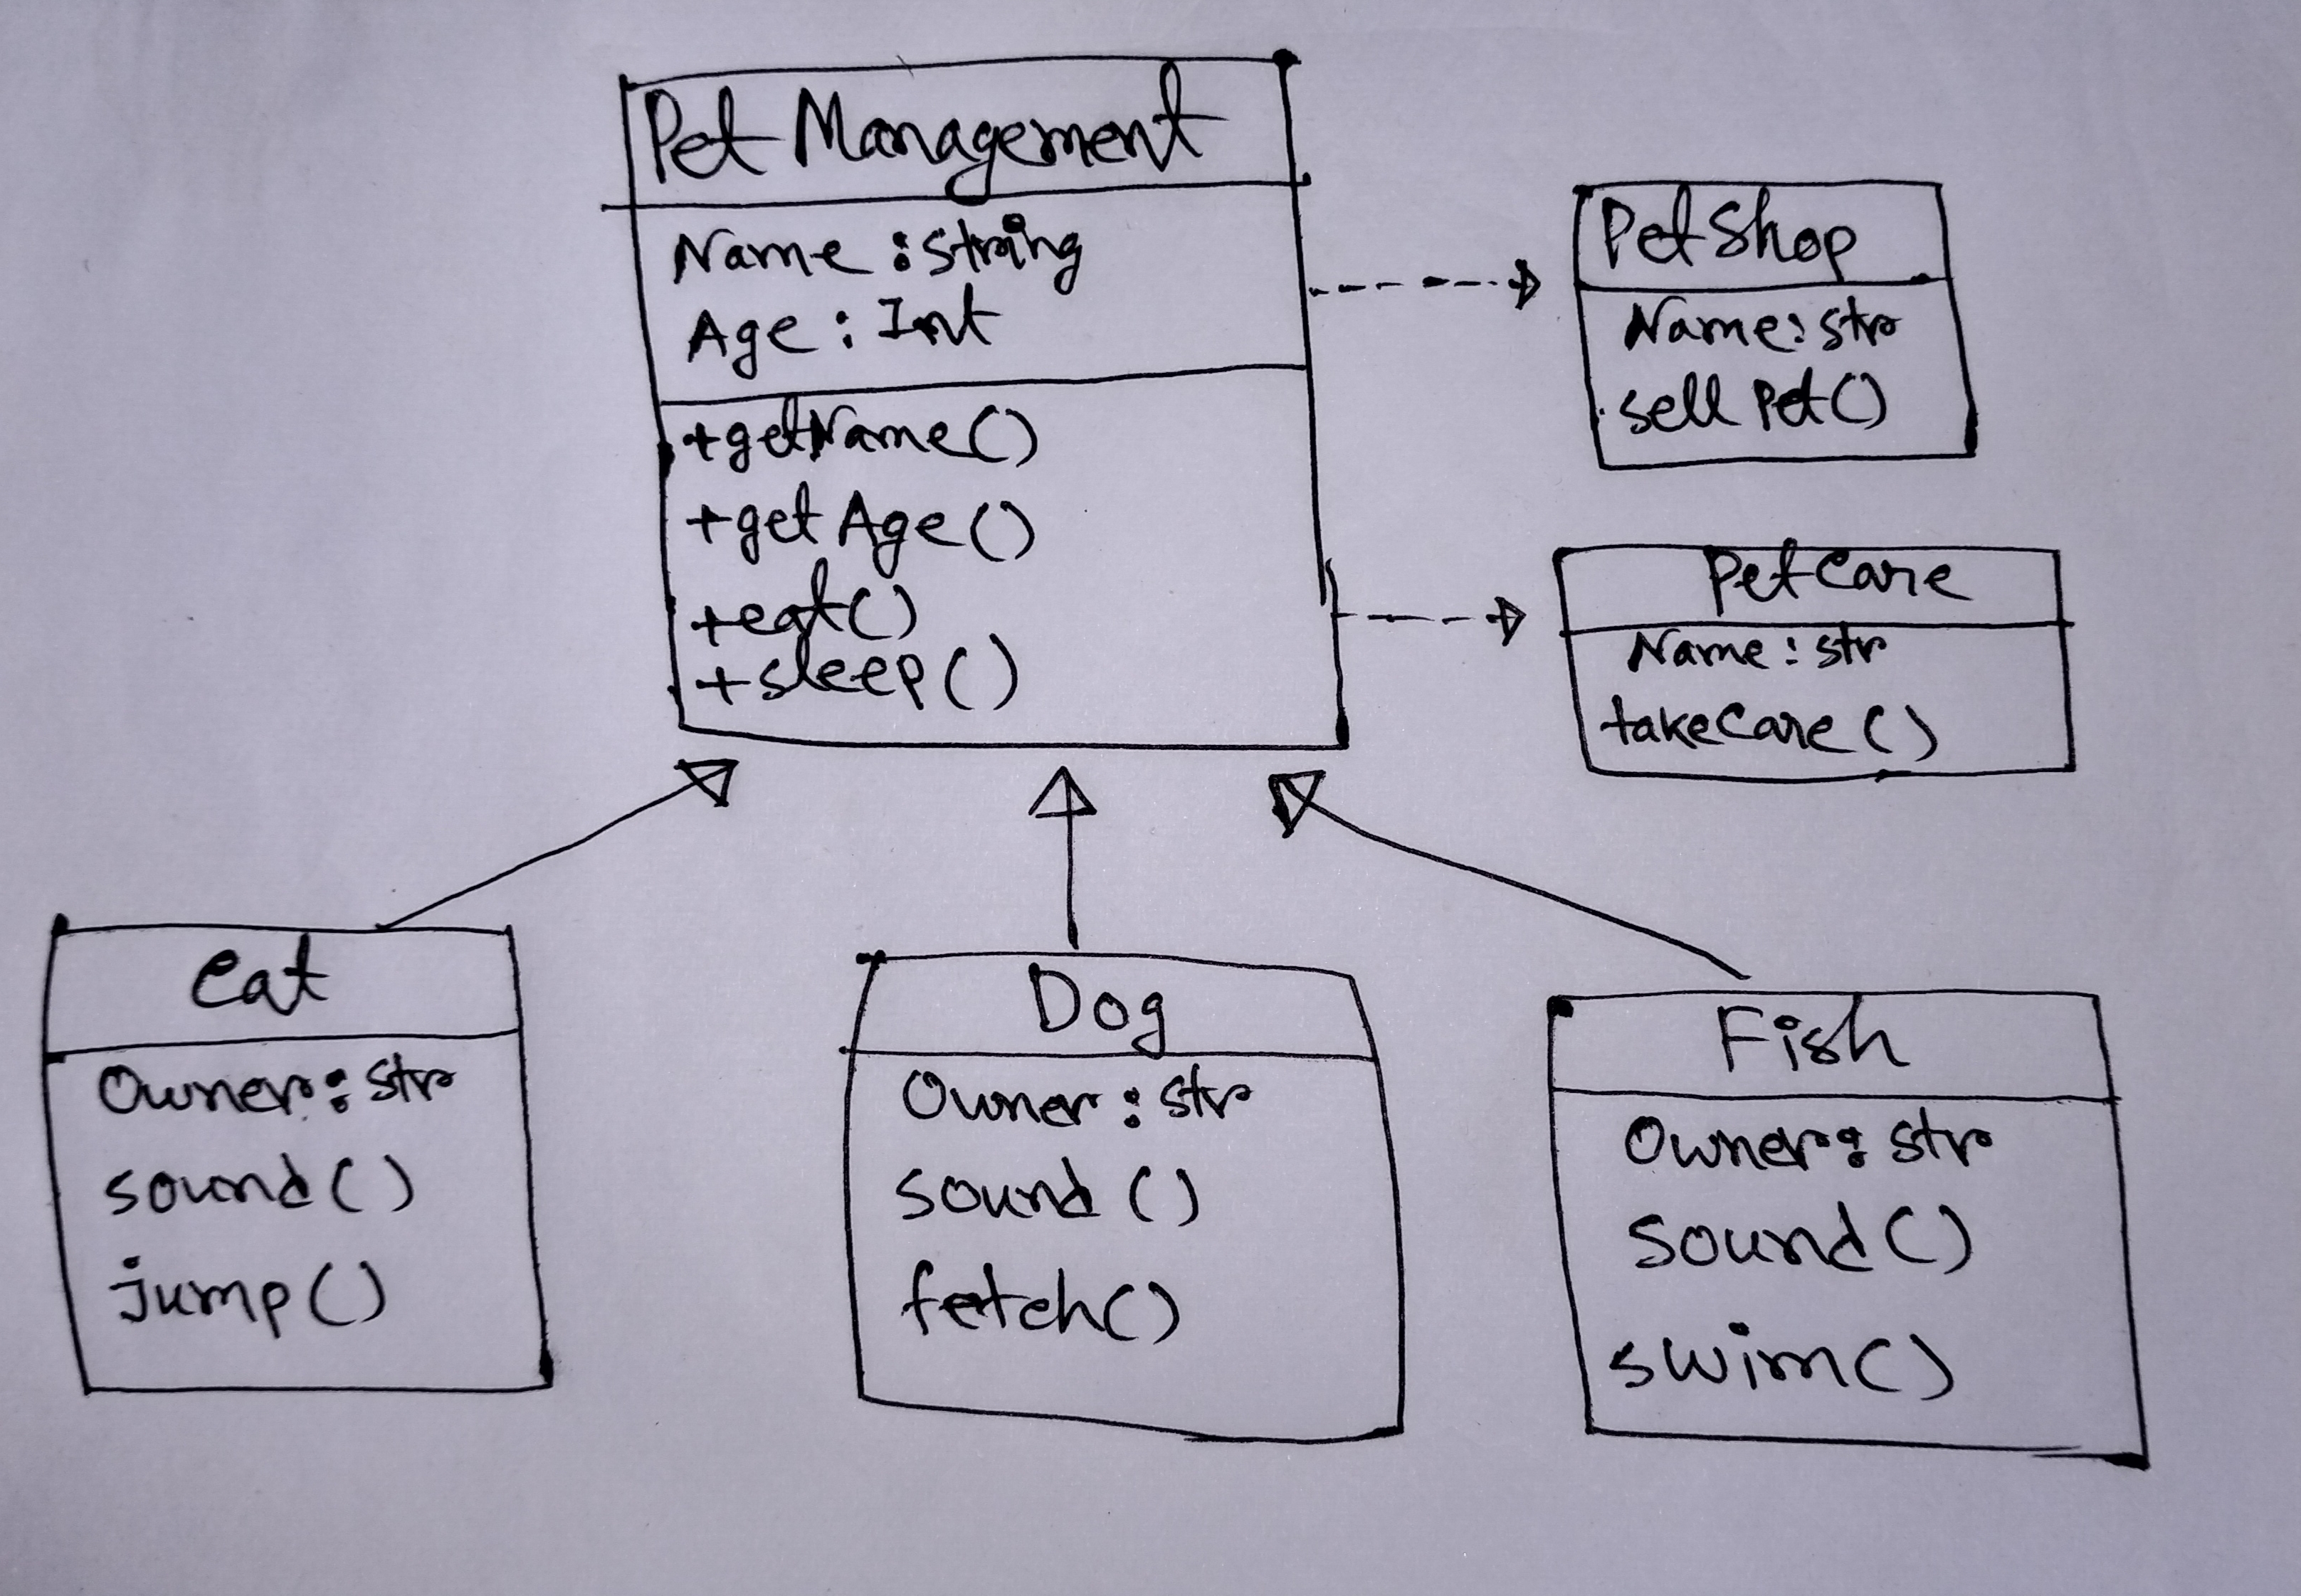 Pet Management
Name : String
Age : Int
+getName()
+getAge()
+eat()
+sleep()
PetShop
Name: str
sell Pet()
PetCare
Name : str
takeCare()
Cat
Owner: str
sound()
jump()
Dog
Owner : str
sound()
fetch()
Fish
Owner: str
sound()
swim()